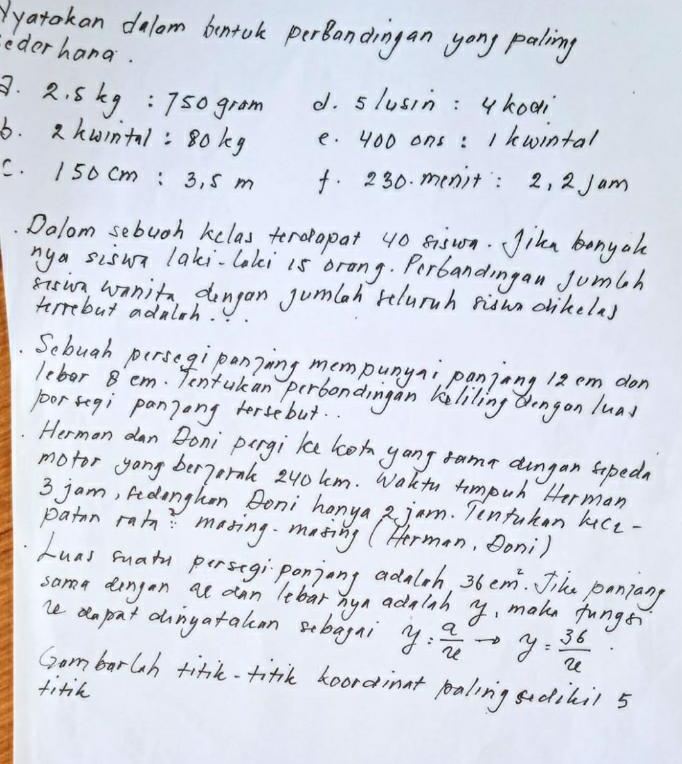 Nyatakan dalam bentuk perBandingan yang paling
sederhana.
a. 2.5 kg : 750 gram d. 5 lusin : 4 kodi
b. 2 kwintal : 80 kg e. 400 ons : 1 kwintal
c. 150 cm : 3,5 m f. 230 menit : 2,2 Jam
. Dalam sebuah kelas terdapat 40 siswa. Jika banyak
nya siswa laki-laki 15 orang. Perbandingan jumlah
siswa wanita dengan jumlah seluruh siswa dikelas
tersebut adalah ...
. Sebuah persegi panjang mempunyai panjang 12 cm dan
lebar 8 cm. Tentukan perbandingan keliling dengan luas
persegi panjang tersebut..
. Herman dan Doni pergi ke kota yang sama dengan sepeda
motor yang berjarak 240 km. Waktu tempuh Herman
3 jam, sedangkan Doni hanya 2 jam. Tentukan kece-
patan rata² masing-masing (Herman, Doni)
. Luas suatu persegi panjang adalah 36 cm². Jika panjang
sama dengan x dan lebar nya adalah y, maka fungsi
x dapat dinyatakan sebagai y = a/x → y = 36/x .
Gambarlah titik-titik koordinat paling sedikit 5
titik